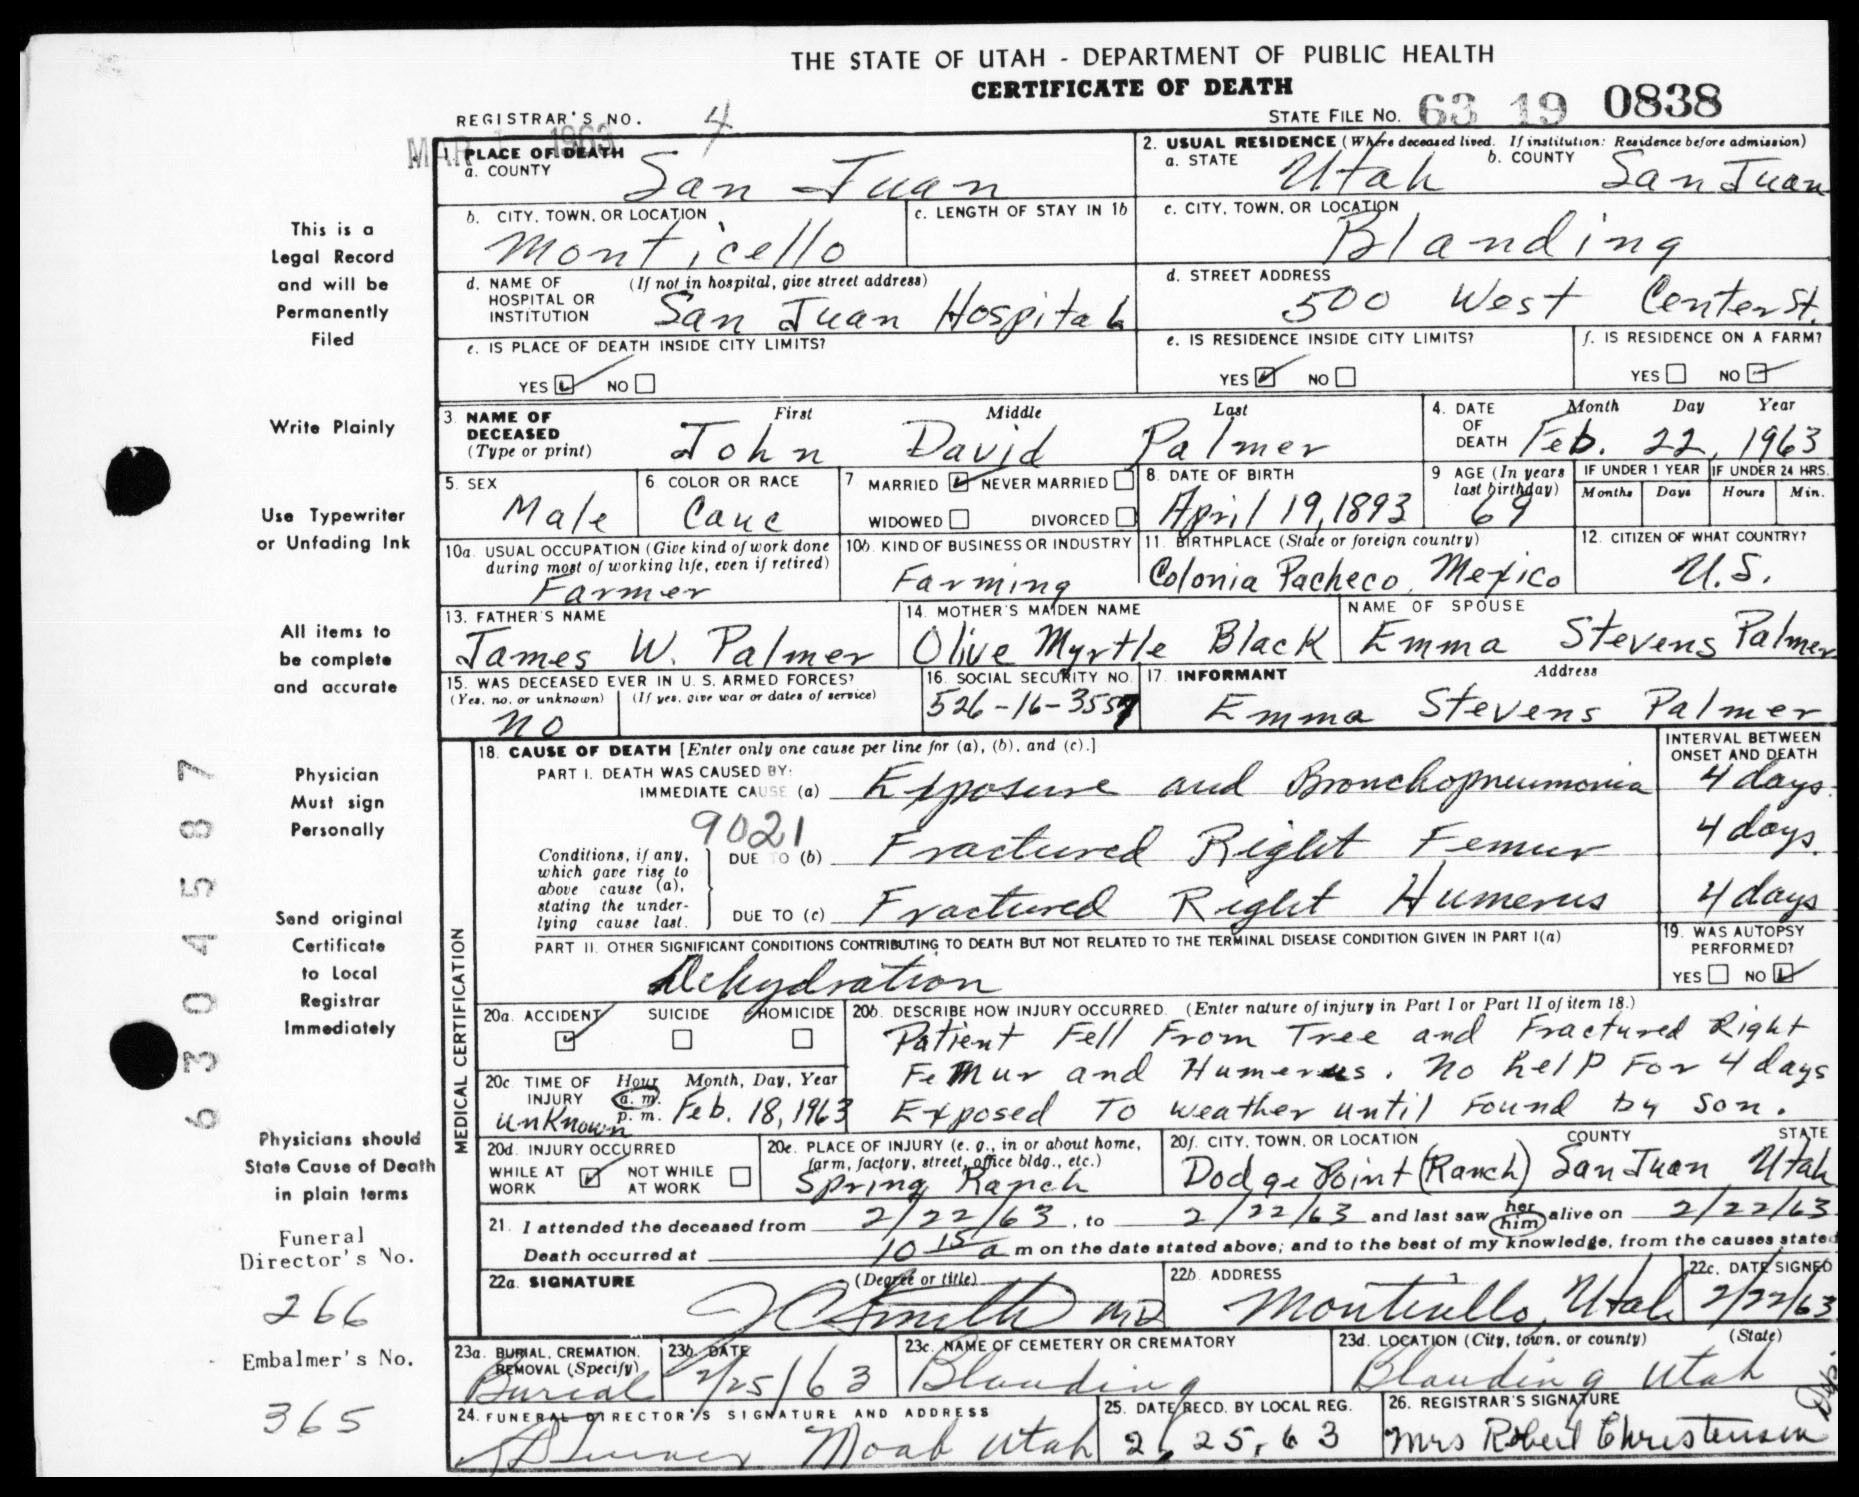 THE STATE OF UTAH - DEPARTMENT OF PUBLIC HEALTH
CERTIFICATE OF DEATH
REGISTRAR'S NO. 4
STATE FILE NO. 63 19 0838
MAR 1 1963
1. PLACE OF DEATH
a. COUNTY San Juan
2. USUAL RESIDENCE (Where deceased lived. If institution: Residence before admission)
a. STATE Utah b. COUNTY San Juan
b. CITY, TOWN, OR LOCATION Monticello
c. LENGTH OF STAY IN 1b
c. CITY, TOWN, OR LOCATION Blanding
d. NAME OF HOSPITAL OR INSTITUTION (If not in hospital, give street address) San Juan Hospital
d. STREET ADDRESS 500 West Center St.
e. IS PLACE OF DEATH INSIDE CITY LIMITS?
YES NO
e. IS RESIDENCE INSIDE CITY LIMITS?
YES NO
f. IS RESIDENCE ON A FARM?
YES NO
3. NAME OF DECEASED (Type or print)
First Middle Last
John David Palmer
4. DATE OF DEATH Month Day Year
Feb. 22, 1963
5. SEX Male
6. COLOR OR RACE Cauc
7 MARRIED NEVER MARRIED
WIDOWED DIVORCED
8. DATE OF BIRTH April 19, 1893
9 AGE (In years last birthday) 69
IF UNDER 1 YEAR Months Days
IF UNDER 24 HRS. Hours Min.
10a. USUAL OCCUPATION (Give kind of work done during most of working life, even if retired) Farmer
10b. KIND OF BUSINESS OR INDUSTRY Farming
11. BIRTHPLACE (State or foreign country) Colonia Pacheco, Mexico
12. CITIZEN OF WHAT COUNTRY? U.S.
13. FATHER'S NAME James W. Palmer
14. MOTHER'S MAIDEN NAME Olive Myrtle Black
NAME OF SPOUSE Emma Stevens Palmer
15. WAS DECEASED EVER IN U. S. ARMED FORCES?
(Yes, no, or unknown) (If yes, give war or dates of service)
no
16. SOCIAL SECURITY NO. 526-16-3557
17. INFORMANT Address
Emma Stevens Palmer
MEDICAL CERTIFICATION
18. CAUSE OF DEATH [Enter only one cause per line for (a), (b), and (c).]
INTERVAL BETWEEN ONSET AND DEATH
PART I. DEATH WAS CAUSED BY:
IMMEDIATE CAUSE (a) Exposure and Bronchopneumonia 4 days.
9021
Conditions, if any, which gave rise to above cause (a), stating the underlying cause last.
DUE TO (b) Fractured Right Femur 4 days.
DUE TO (c) Fractured Right Humerus 4 days
PART II. OTHER SIGNIFICANT CONDITIONS CONTRIBUTING TO DEATH BUT NOT RELATED TO THE TERMINAL DISEASE CONDITION GIVEN IN PART I(a)
Dehydration
19. WAS AUTOPSY PERFORMED?
YES NO
20a. ACCIDENT SUICIDE HOMICIDE
20b. DESCRIBE HOW INJURY OCCURRED. (Enter nature of injury in Part I or Part II of item 18.)
Patient Fell From Tree and Fractured Right
Femur and Humerus. No help For 4 days
Exposed To weather until Found by Son.
20c. TIME OF INJURY Hour Month, Day, Year
a. m.
p. m.
unknown Feb. 18, 1963
20d. INJURY OCCURRED
WHILE AT WORK NOT WHILE AT WORK
20e. PLACE OF INJURY (e. g., in or about home, farm, factory, street, office bldg., etc.)
Spring Ranch
20f. CITY, TOWN, OR LOCATION COUNTY STATE
Dodge Point (Ranch) San Juan Utah
21. I attended the deceased from 2/22/63, to 2/22/63 and last saw her him alive on 2/22/63
Death occurred at 10 15 a m on the date stated above; and to the best of my knowledge, from the causes stated
22a. SIGNATURE (Degree or title)
J C Smith MD
22b. ADDRESS Monticello, Utah
22c. DATE SIGNED 2/22/63
23a. BURIAL, CREMATION, REMOVAL (Specify) Burial
23b. DATE 2/25/63
23c. NAME OF CEMETERY OR CREMATORY Blanding
23d. LOCATION (City, town, or county) (State)
Blanding Utah
24. FUNERAL DIRECTOR'S SIGNATURE AND ADDRESS
Moab Utah
25. DATE RECD. BY LOCAL REG. 2, 25, 63
26. REGISTRAR'S SIGNATURE
Mrs Robert Christensen Dep.
This is a
Legal Record
and will be
Permanently
Filed
Write Plainly
Use Typewriter
or Unfading Ink
All items to
be complete
and accurate
Physician
Must sign
Personally
Send original
Certificate
to Local
Registrar
Immediately
Physicians should
State Cause of Death
in plain terms
Funeral
Director's No.
266
Embalmer's No.
365
63045 87